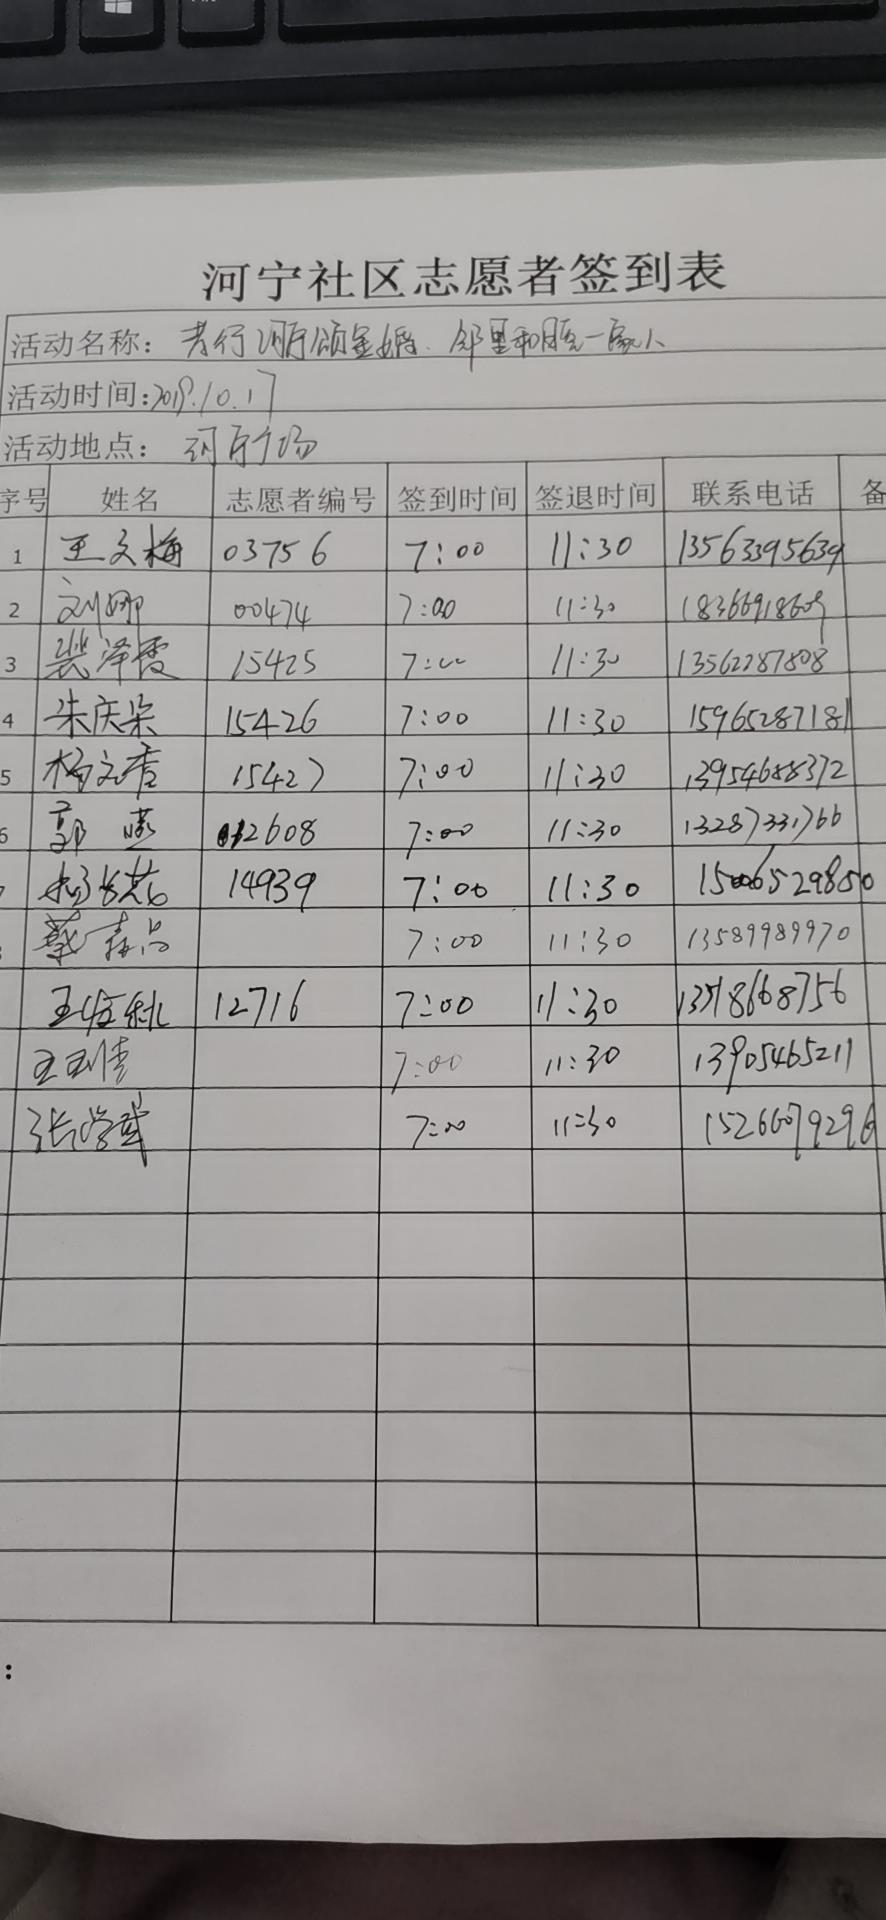 河宁社区志愿者签到表
活动名称: 孝行河宁颂金婚、邻里和睦一家人
活动时间:2019.10.17
活动地点: 河宁广场
序号 姓名 志愿者编号 签到时间 签退时间 联系电话 备
1 王文梅 03756 7:00 11:30 13563395639
2 刘娜 00474 7:00 11:30
3 裴泽霞 15425 7:00 11:30 13562287808
4 朱庆朵 15426 7:00 11:30 15965287181
5 杨文香 15427 7:00 11:30 13954688372
6 郭 12608 7:00 11:30 13287331766
14939 7:00 11:30 15006529850
蔡春品 7:00 11:30 13589989970
12716 7:00 11:30
7:00 11:30 13905465211
7:00 11:30 15266079296
: